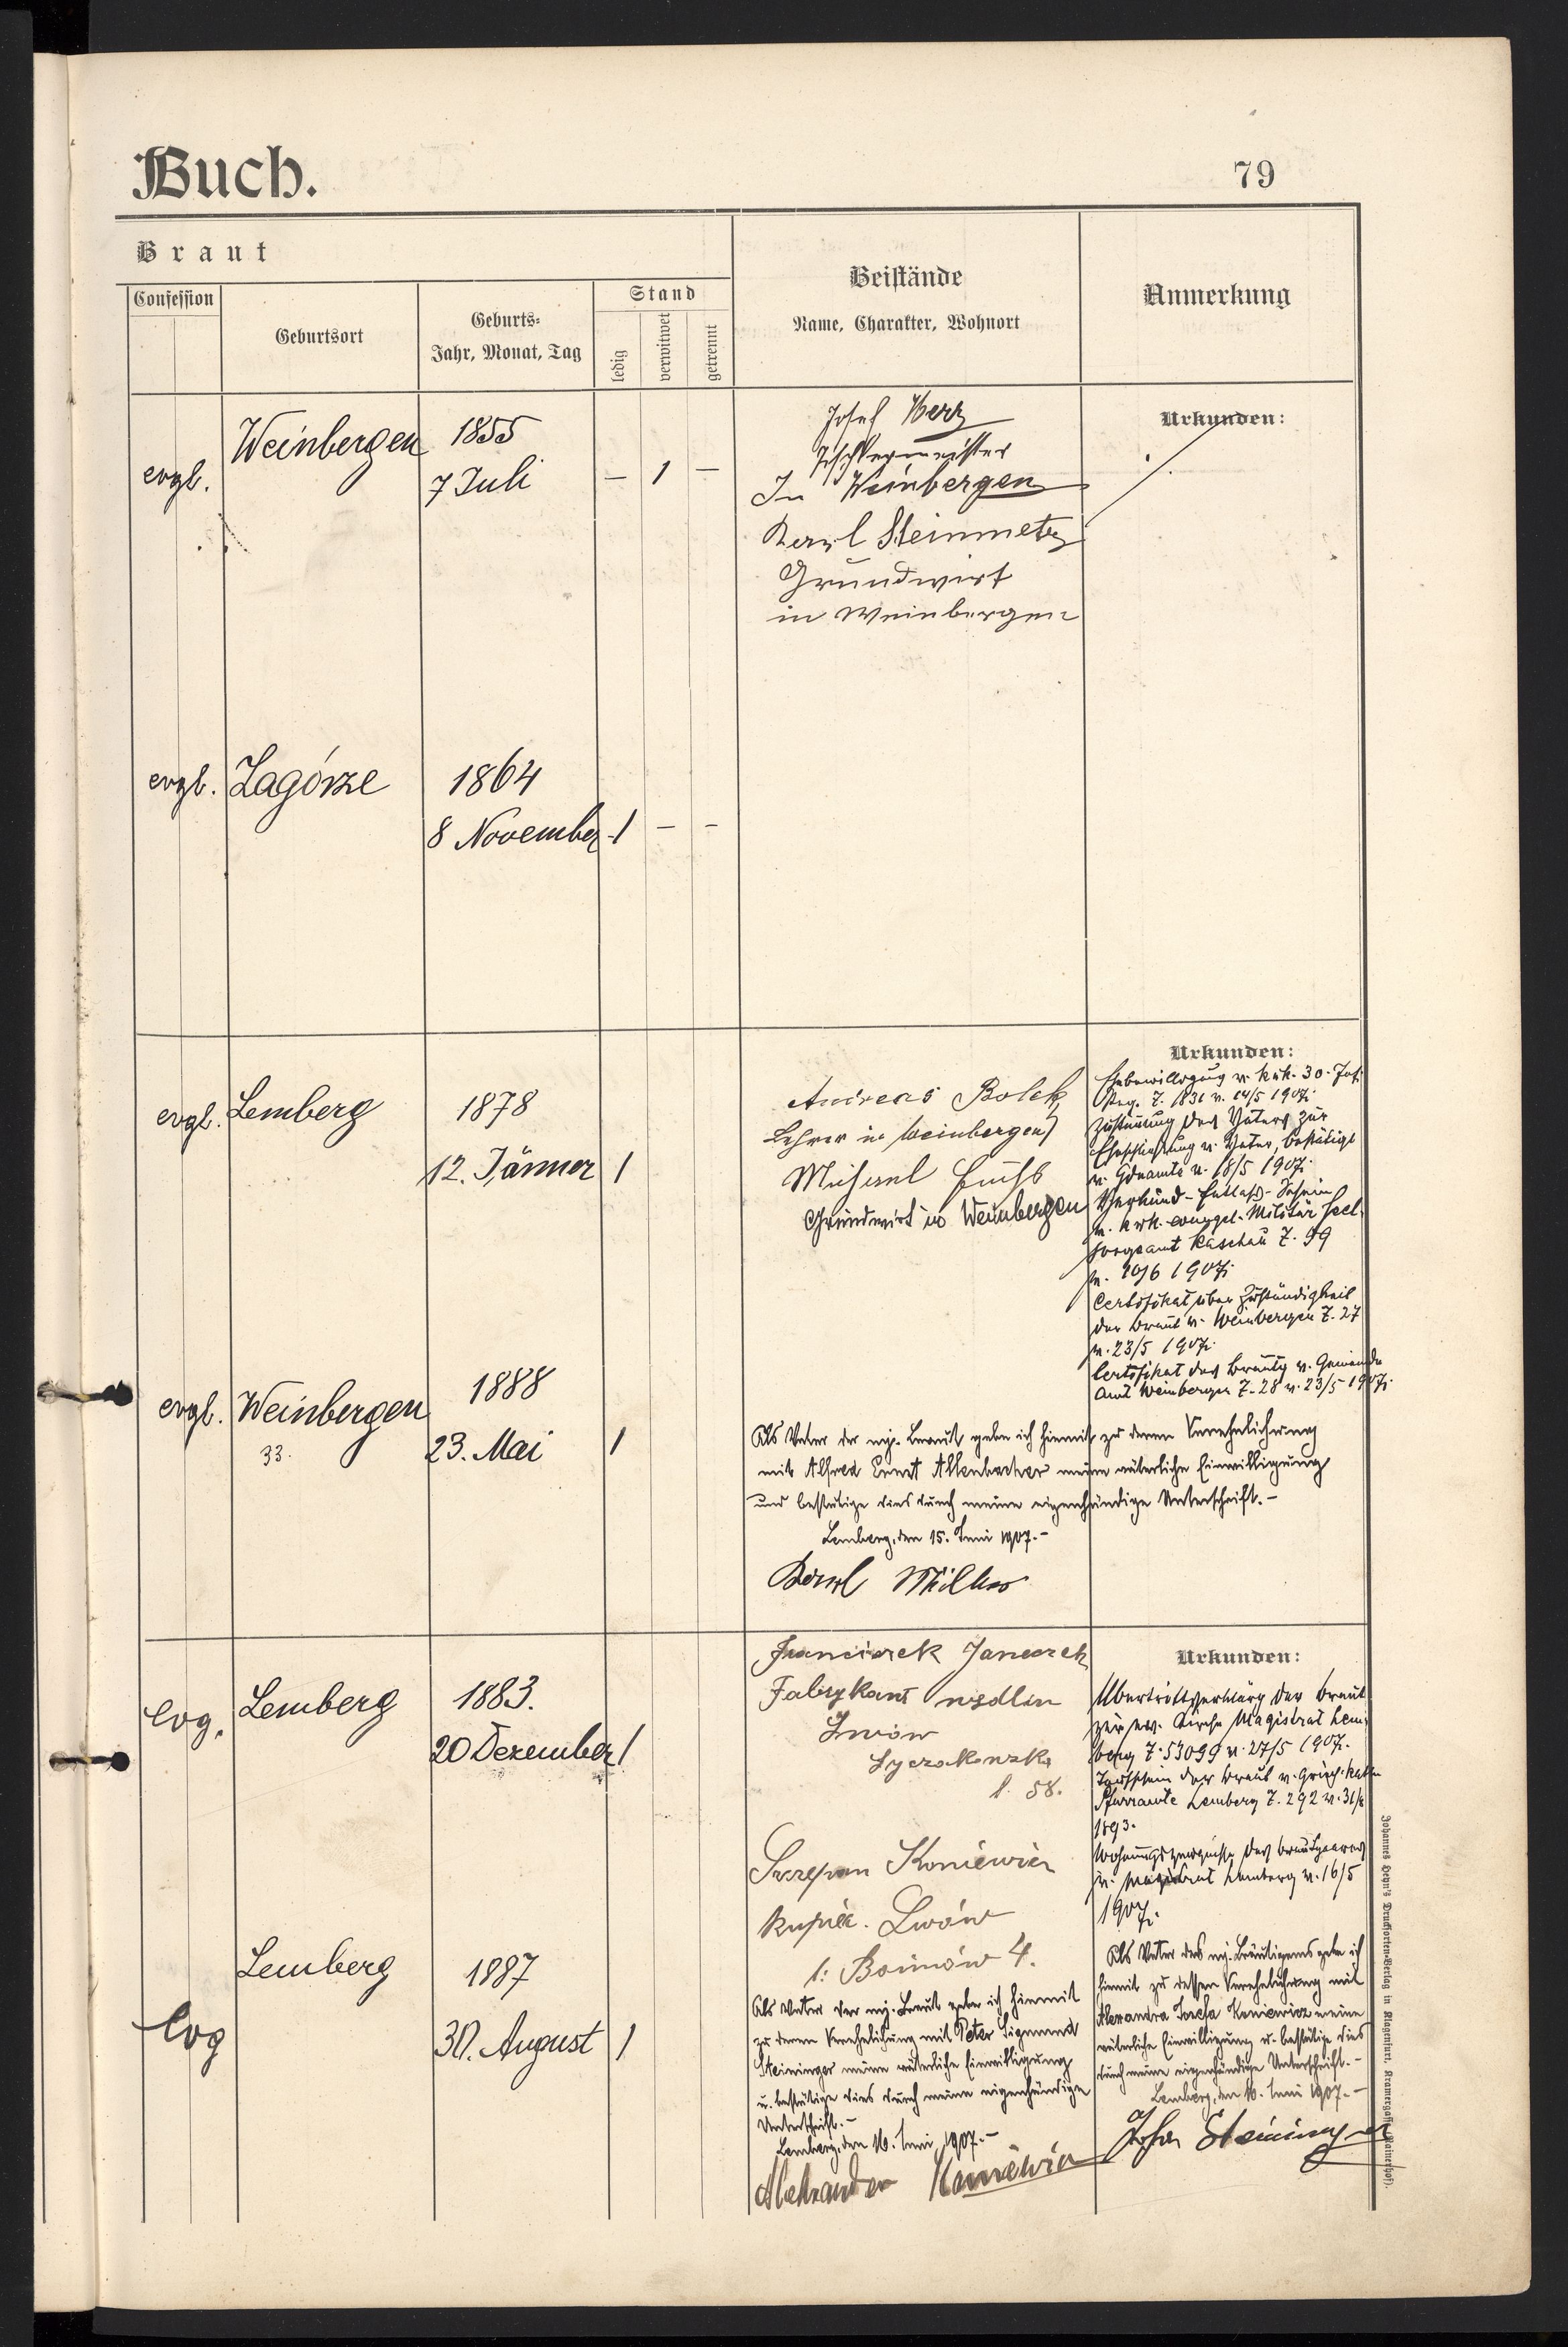 Buch.
79
Braut
Confession
Geburtsort
Geburts-
Jahr, Monat, Tag
Stand
ledig
verwitwet
getrennt
Beistände
Name, Charakter, Wohnort
Anmerkung
evgl.
Weinbergen
1855
7 Juli
— 1 —
Josef Herz
Tischlermeister
In Weinbergen
Karl Steinmetz
Grundwirt
in Weinbergen
Urkunden:
evgl.
Zagórze
1864
8 November
1 — —
evgl.
Lemberg
1878
12. Jänner
1
Andreas Bolek,
Lehrer in Weinbergen
Michael
Grundwirt in Weinbergen
Urkunden:
Ehebewilligung v. k. u. k. 30. Inf.
Reg. Z. 1831 v. 14/5 1907.
Zustimmung des Vaters zur
Eheschließung v. Vater, bestätigt
v. Gdeamte v. 18/5 1907.
Verkünd-Entlaß-Schein
v. k. u. k. evangel. Militär Seel-
sorgeamt Kaschau Z. 99
v. 10/6 1907.
Certifikat über Zuständigkeit
der Braut v. Weinbergen Z. 27
v. 23/5 1907.
Certifikat des Bräutg v. Gemeinde
Amt Weinbergen Z. 28 v. 23/5 1907.
evgl.
Weinbergen
33.
1888
23. Mai
1
Als Vater der mj. Braut gebe ich hiemit zu deren Verehelichung
mit Alfred Ernst Altenbacher meine väterliche Einwilligung
und bestätige dies durch meine eigenhändige Unterschrift. -
Lemberg, den 15. Juni 1907. -
Karl Müller
evg.
Lemberg
1883.
20 Dezember
1
Franciszek Janeczek
Fabrykant
Lwów
Łyczakowska
l. 58.
Szczepan Koniewicz
kupiec. Lwów
l: Boimów 4.
Urkunden:
Übertrittserklärg der Braut
zur ev. Kirche Magistrat Lem-
berg Z. 53099 v. 27/5 1907.
Taufschein der Braut v. Griech. kath
Pfarramte Lemberg Z. 292 v.
1893.
Wohnungszeugniss des Brautpaares
v. Magistrat Lemberg v. 16/5
1907.
evg
Lemberg
1887
30. August
1
Als Vater der mj. Braut gebe ich hiemit
zu deren Verehelichung mit Peter Sigmund
Steininger meine väterliche Einwilligung
u. bestätige dies durch meine eigenhändige
Unterschrift. -
Lemberg, den 16. Juni 1907. -
Aleksander Koniewicz
Als Vater des mj. Bräutigams gebe ich
hiemit zu dessen Verehelichung mit
Alexandra Josefa Koniewicz meine
väterliche Einwilligung u. bestätige dies
durch meine eigenhändige Unterschrift. -
Lemberg, den 16. Juni 1907. -
Joh. Steininger
Johannes Heyn's Drucksorten-Verlag in Klagenfurt, Kramergasse (Rainerhof).